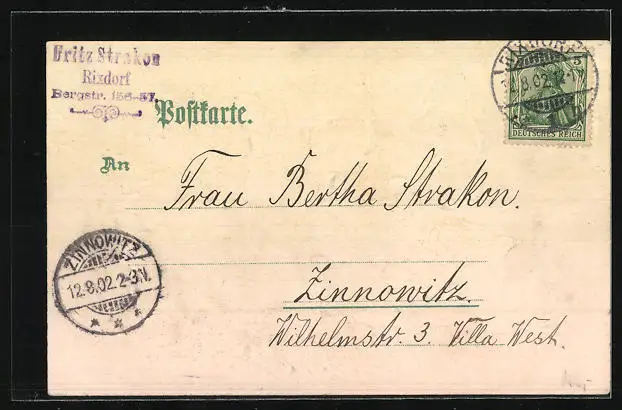 Fritz Strakon
Rixdorf
Bergstr. 156-57.
Postkarte.
5
DEUTSCHES REICH
An
Frau Bertha Strakon.
ZINNOWITZ
12.8.02.2-3N.
Zinnowitz.
Wilhelmstr. 3. Villa West.